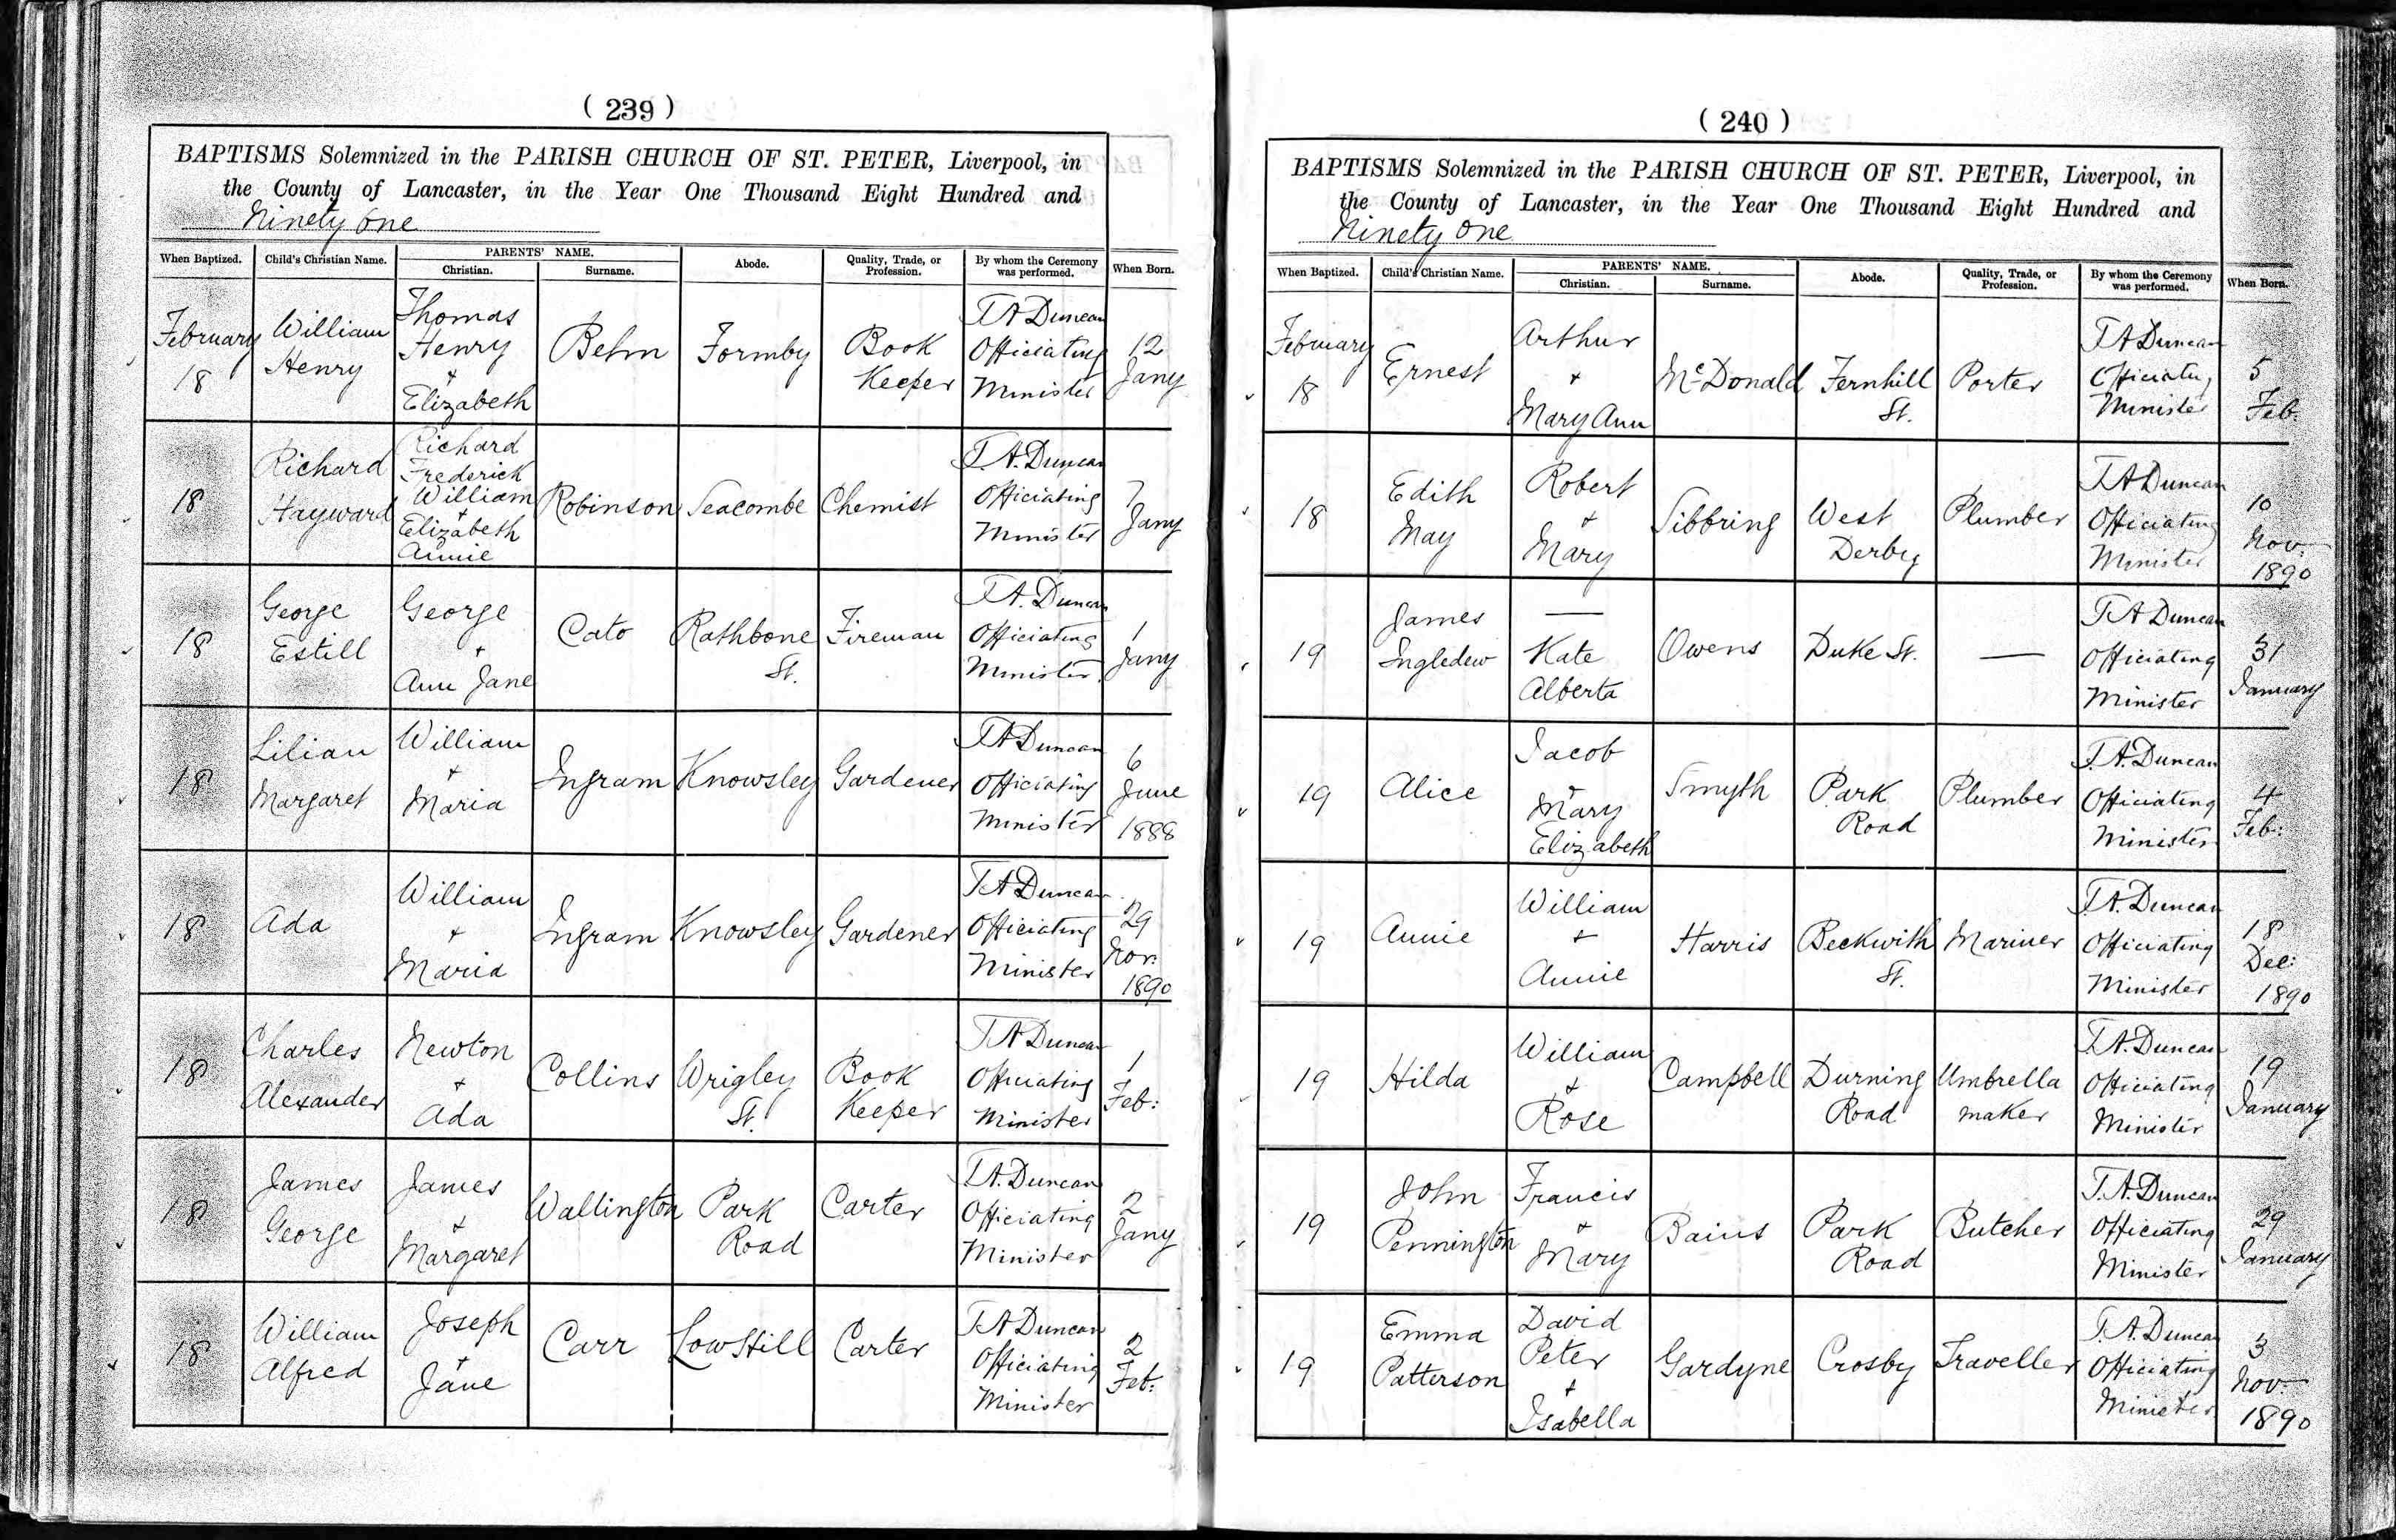 ( 239 )
BAPTISMS Solemnized in the PARISH CHURCH OF ST. PETER, Liverpool, in
the County of Lancaster, in the Year One Thousand Eight Hundred and
Ninety One
When Baptized. Child's Christian Name. PARENTS' NAME. Christian. Surname. Abode. Quality, Trade, or Profession. By whom the Ceremony was performed. When Born.
February 18 William Henry Thomas Henry + Elizabeth Behn Formby Book Keeper T A Duncan Officiating Minister 12 Jany
18 Richard Hayward Richard Frederick William + Elizabeth Annie Robinson Seacombe Chemist T. A. Duncan Officiating Minister 7 Jany
18 George Estill George + Ann Jane Cato Rathbone St. Fireman T A. Duncan Officiating Minister 1 Jany
18 Lilian Margaret William + Maria Ingram Knowsley Gardener T A Duncan Officiating Minister 6 June 1888
18 Ada William + Maria Ingram Knowsley Gardener T A Duncan Officiating Minister 29 Nov: 1890
18 Charles Alexander Newton + Ada Collins Wrigley St. Book Keeper T A Duncan Officiating Minister 1 Feb:
18 James George James + Margaret Wallington Park Road Carter T. A. Duncan Officiating Minister 2 Jany
18 William Alfred Joseph + Jane Carr Low Hill Carter T. A Duncan Officiating Minister 2 Feb:
( 240 )
BAPTISMS Solemnized in the PARISH CHURCH OF ST. PETER, Liverpool, in
the County of Lancaster, in the Year One Thousand Eight Hundred and
Ninety One
When Baptized. Child's Christian Name. PARENTS' NAME. Christian. Surname. Abode. Quality, Trade, or Profession. By whom the Ceremony was performed. When Born.
February 18 Ernest Arthur + Mary Ann McDonald Fernhill St. Porter T A Duncan Officiatg Minister 5 Feb.
18 Edith May Robert + Mary Sibbring West Derby Plumber T A Duncan Officiating Minister 10 Nov: 1890
19 James Ingledew — Kate Alberta Owens Duke St. — T A Duncan Officiating Minister 31 January
19 Alice Jacob + Mary Elizabeth Smyth Park Road Plumber T. A. Duncan Officiating Minister 4 Feb:
19 Annie William + Annie Harris Beckwith St. Mariner T. A. Duncan Officiating Minister 18 Dec: 1890
19 Hilda William + Rose Campbell Durning Road Umbrella maker T. A. Duncan Officiating Minister 19 January
19 John Pennington Francis + Mary Bains Park Road Butcher T. A. Duncan Officiating Minister 29 January
19 Emma Patterson David Peter + Isabella Gardyne Crosby Traveller T. A. Duncan Officiating Minister 3 Nov: 1890